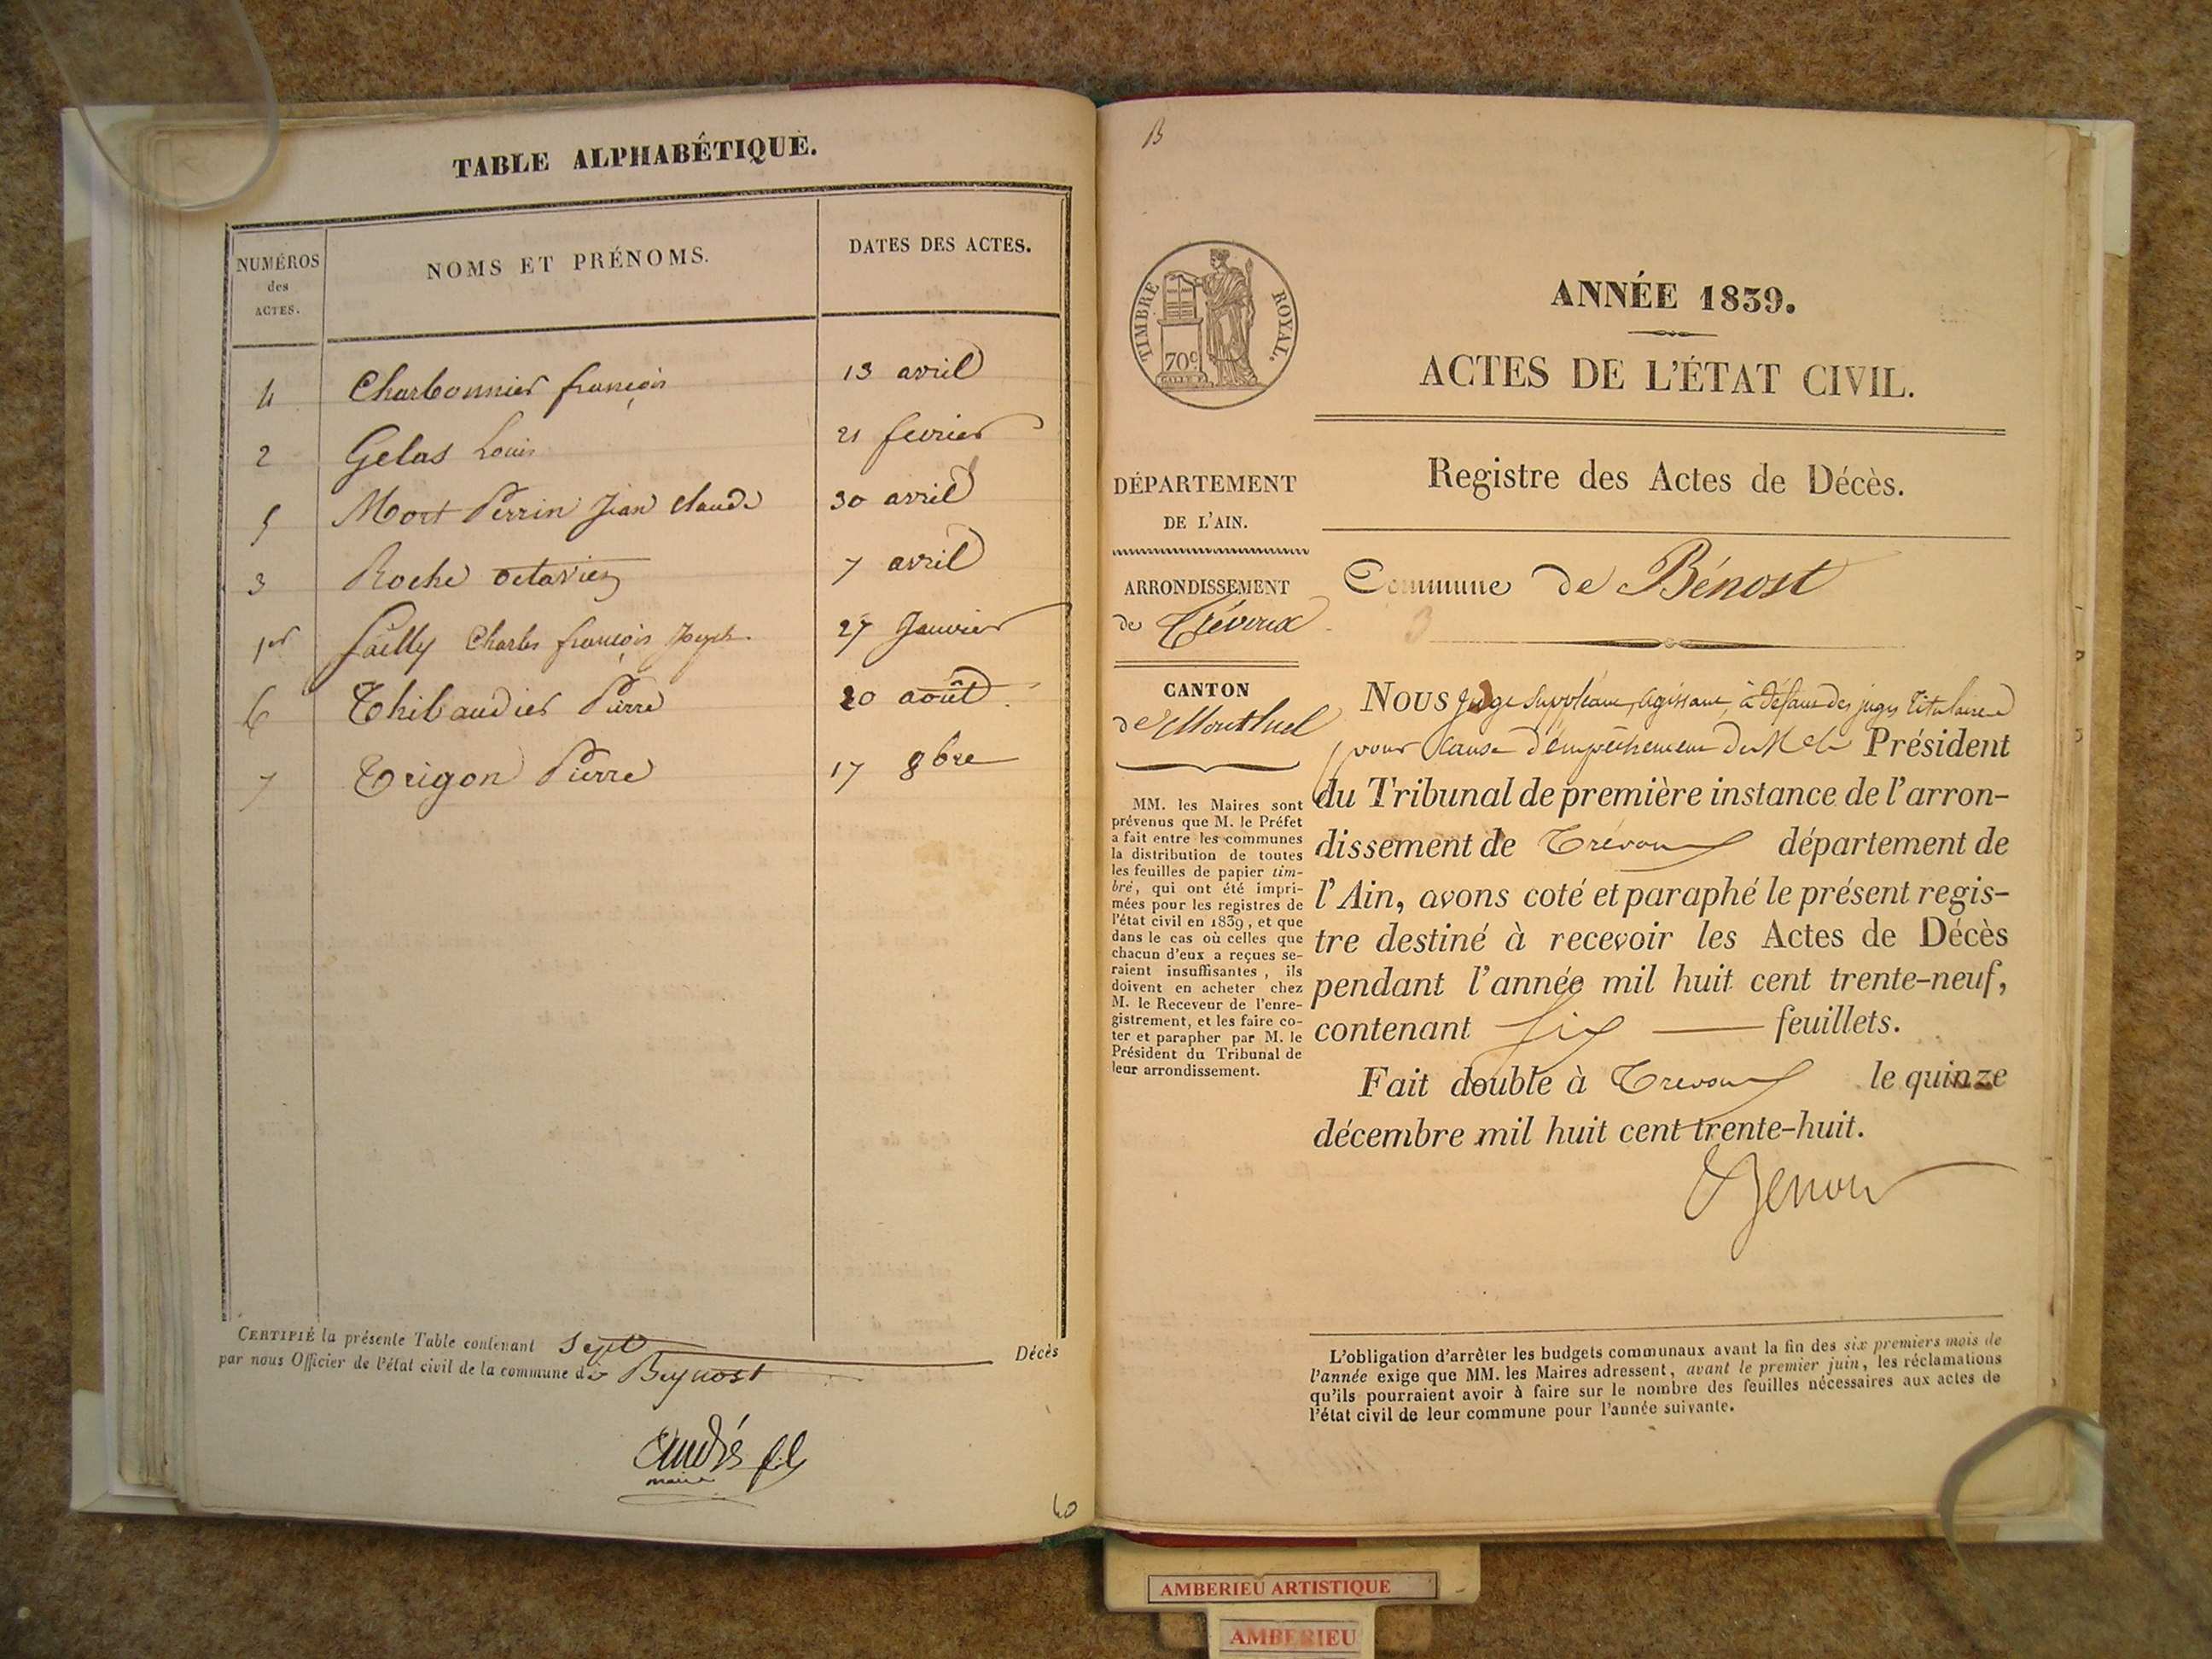 TABLE ALPHABÉTIQUE.
NUMÉROS des ACTES.
NOMS ET PRÉNOMS.
DATES DES ACTES.
4 Charbonnier françois 13 avril
2 Gelas Louis 21 fevrier
5 Mort Perrin Jean Claude 30 avril
3 Roche octavien 7 avril
1er Sailly Charles françois Joseph. 27 Janvier
6 Thibaudier Pierre 20 août
7 Trigon Pierre 17 8bre
CERTIFIÉ la présente Table contenant Sept Décès
par nous Officier de l'état civil de la commune de Beynost
André fils
maire
60
B
TIMBRE ROYAL.
70c
ANNÉE 1839.
ACTES DE L'ÉTAT CIVIL.
Registre des Actes de Décès.
DÉPARTEMENT
DE L'AIN.
ARRONDISSEMENT
de Trévoux
CANTON
de Montluel
MM. les Maires sont
prévenus que M. le Préfet
a fait entre les communes
la distribution de toutes
les feuilles de papier tim-
bré, qui ont été impri-
mées pour les registres de
l'état civil en 1839, et que
dans le cas où celles que
chacun d'eux a reçues se-
raient insuffisantes, ils
doivent en acheter chez
M. le Receveur de l'enre-
gistrement, et les faire co-
ter et parapher par M. le
Président du Tribunal de
leur arrondissement.
Commune de Bénost
NOUS juge suppléant, agissant, à défaut des juges titulaires
pour cause d'empêchement de M le Président
du Tribunal de première instance de l'arron-
dissement de Trévoux département de
l'Ain, avons coté et paraphé le présent regis-
tre destiné à recevoir les Actes de Décès
pendant l'année mil huit cent trente-neuf,
contenant six feuillets.
Fait double à Trevoux le quinze
décembre mil huit cent trente-huit.
L'obligation d'arrêter les budgets communaux avant la fin des six premiers mois de
l'année exige que MM. les Maires adressent, avant le premier juin, les réclamations
qu'ils pourraient avoir à faire sur le nombre des feuilles nécessaires aux actes de
l'état civil de leur commune pour l'année suivante.
AMBERIEU ARTISTIQUE
AMBERIEU